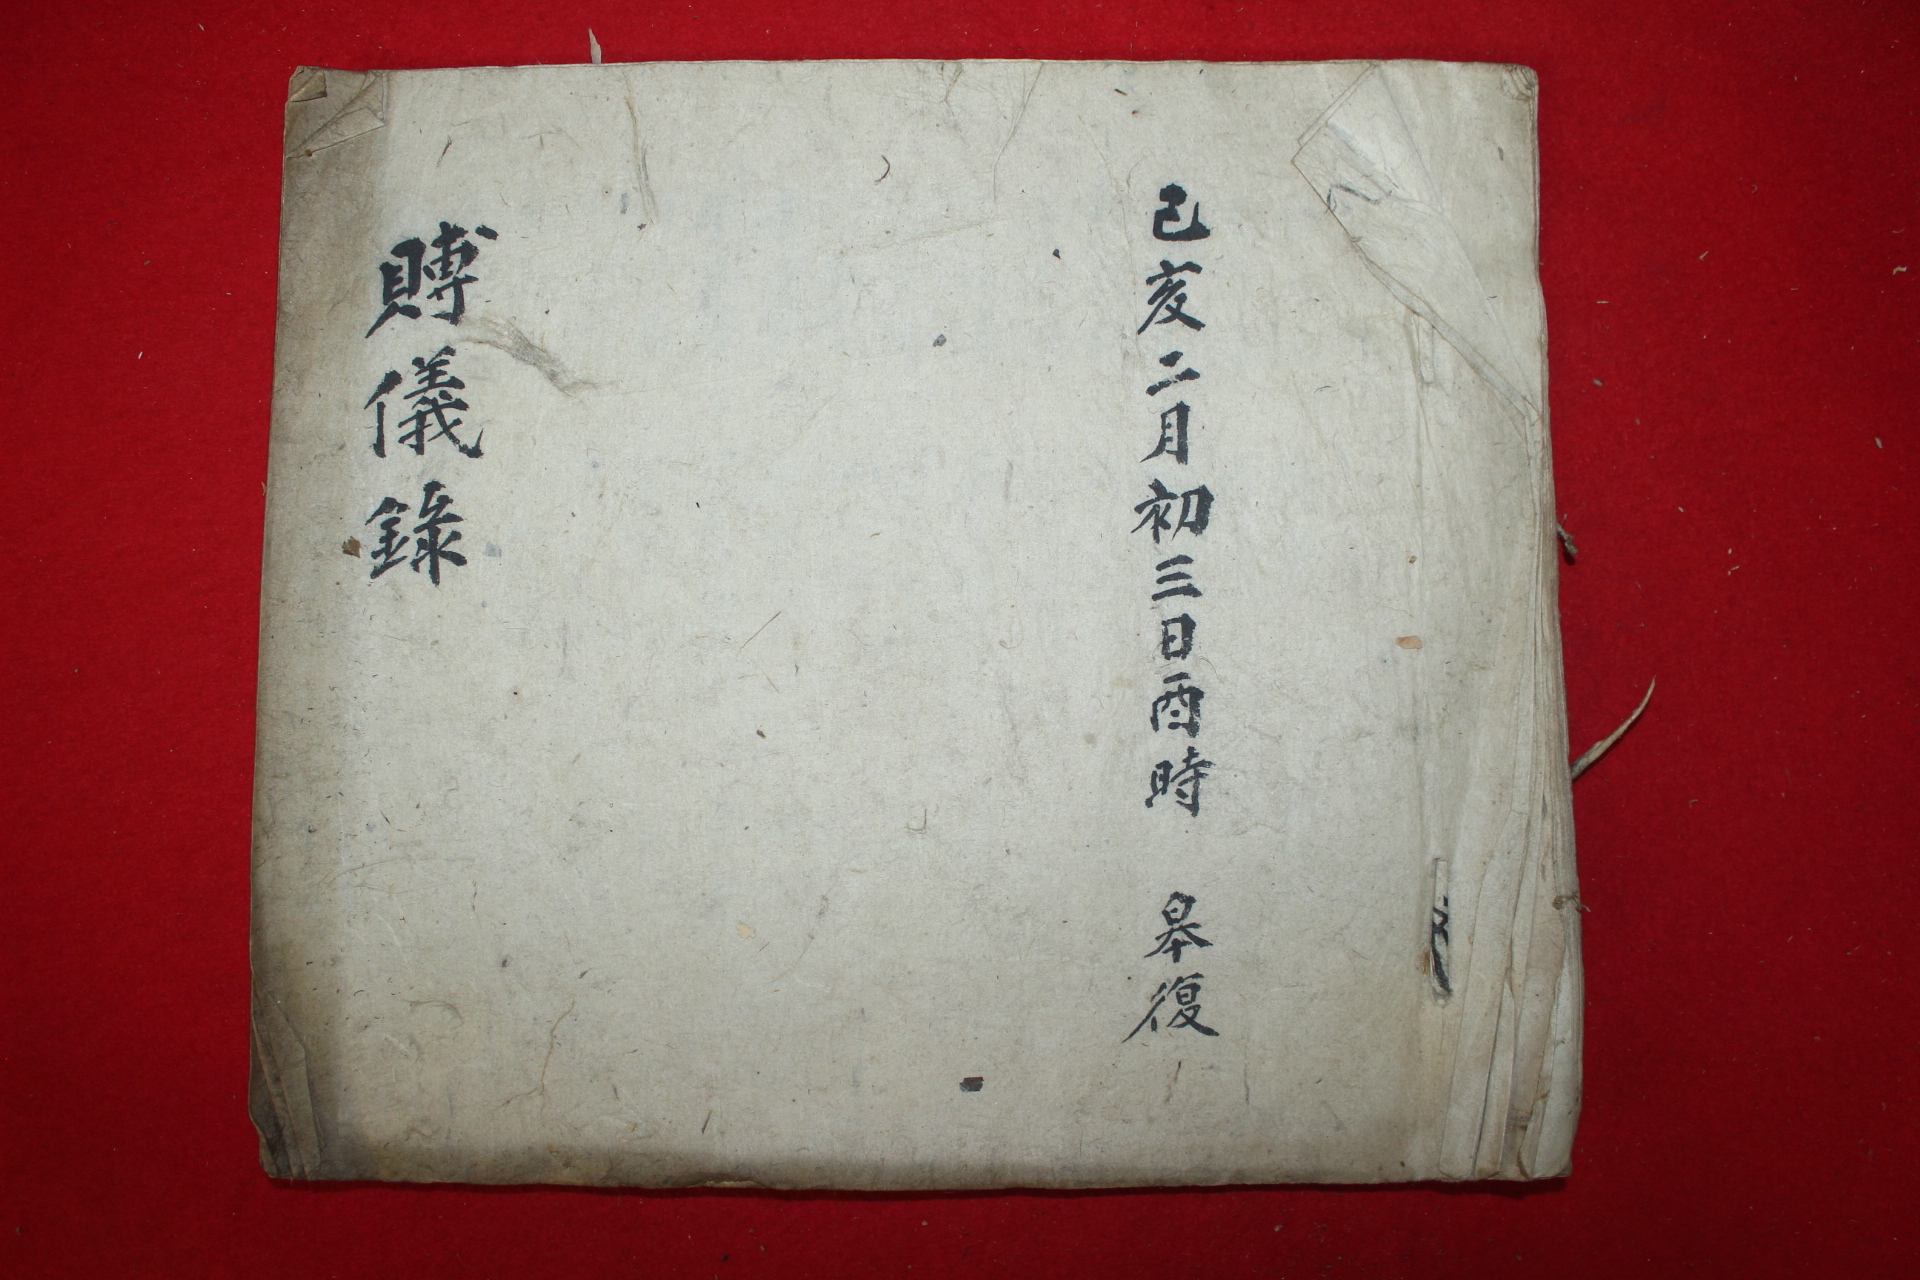 己亥二月初三日酉時 皋復
賻儀錄